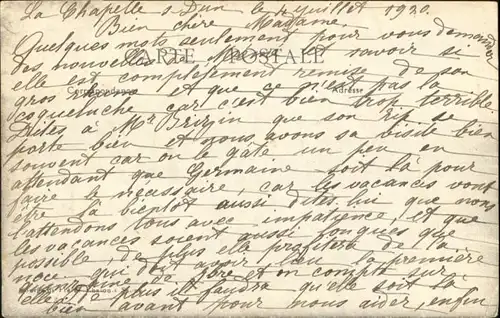 La Chapelle s Dun le 4 juillet 1920.
Bien chère Madame.
Quelques mots seulement pour vous demander
CARTE POSTALE
des nouvelles de et savoir si
elle est complètement remise de son
gros et que ce n'est pas la
Correspondance Adresse
coqueluche car c'est bien trop terrible
Dites à Mr que son se
porte bien et nous avons sa visite bien
souvent car on le gâte un peu en
attendant que Germaine soit là pour
faire le nécessaire, car les vacances vont
être là bientôt aussi dites lui que nous
l'attendons tous avec impatience, et que
les vacances soient aussi longues que
possible de plus elle profitera de la
noce qui doit avoir lieu la première
quinzaine de et on compte sur
elle, de plus il faudra qu'elle soit là
bien avant pour nous aider, enfin